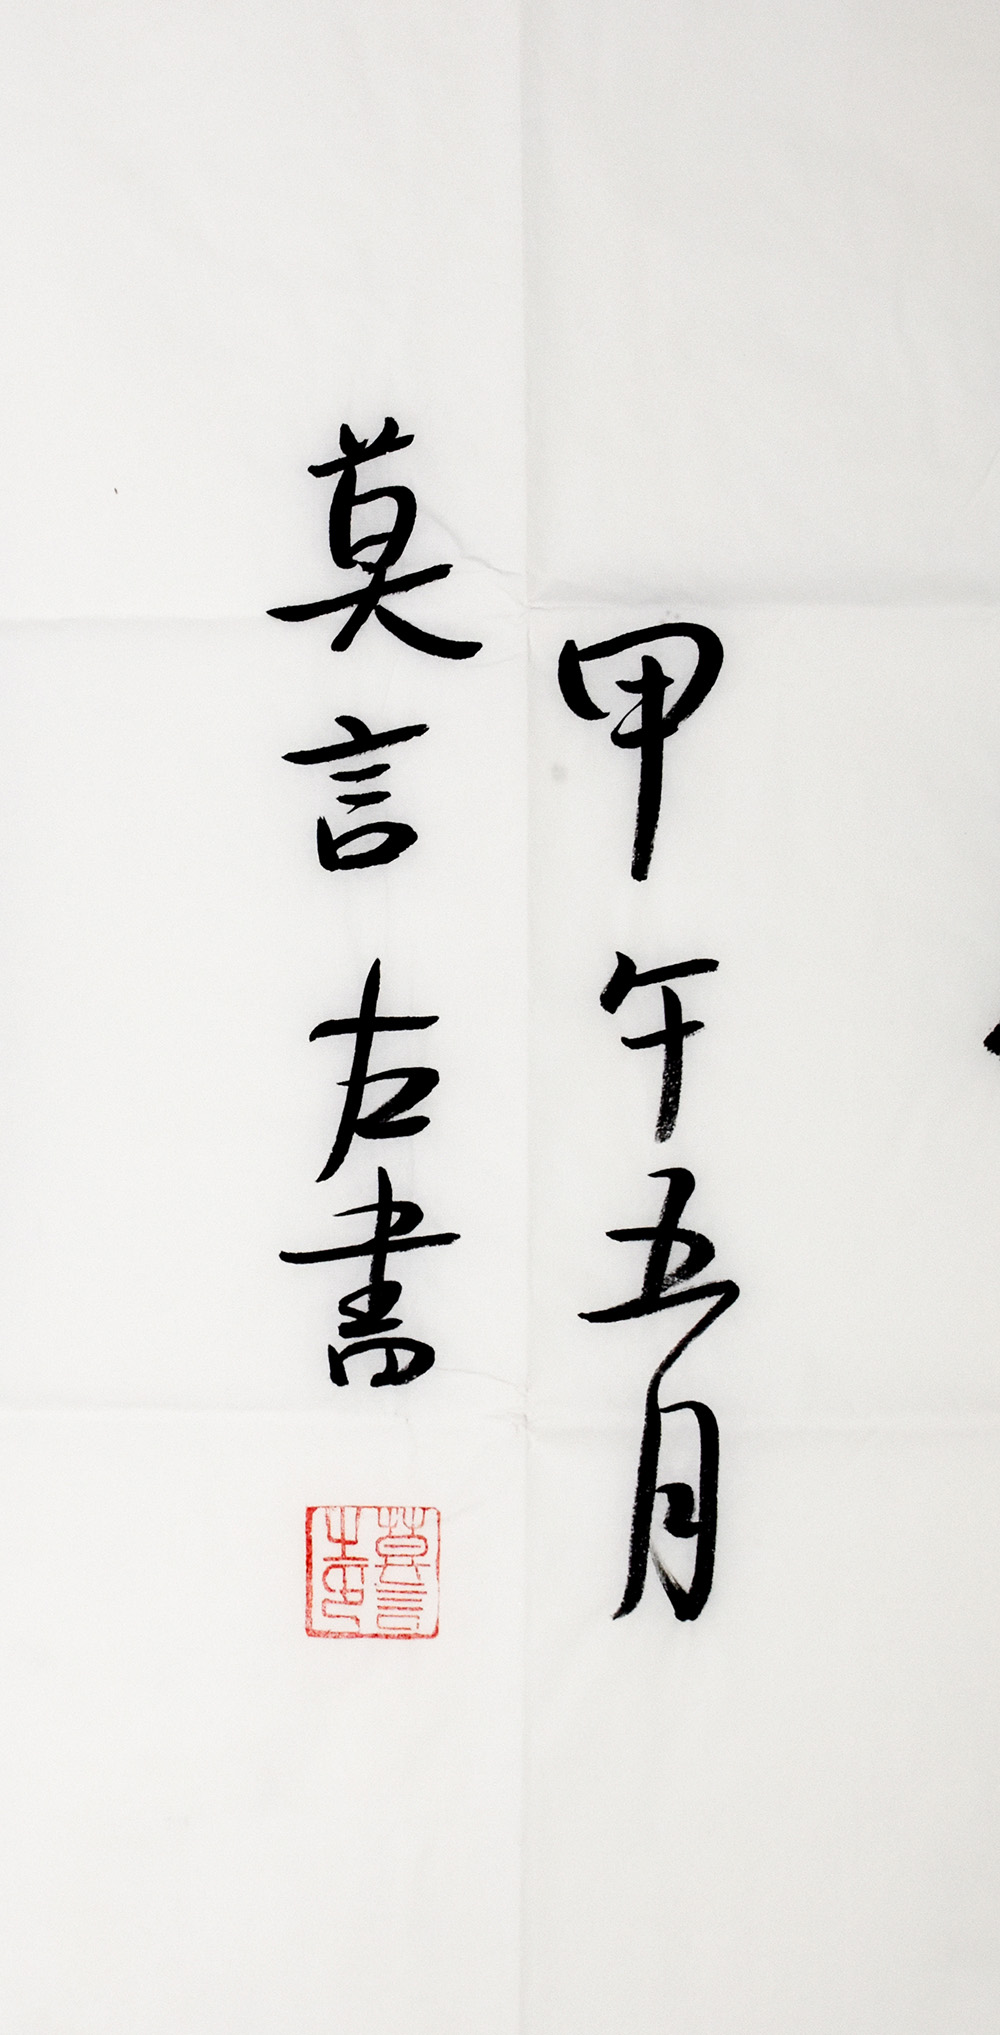 甲午五月
莫言左書
莫言之印